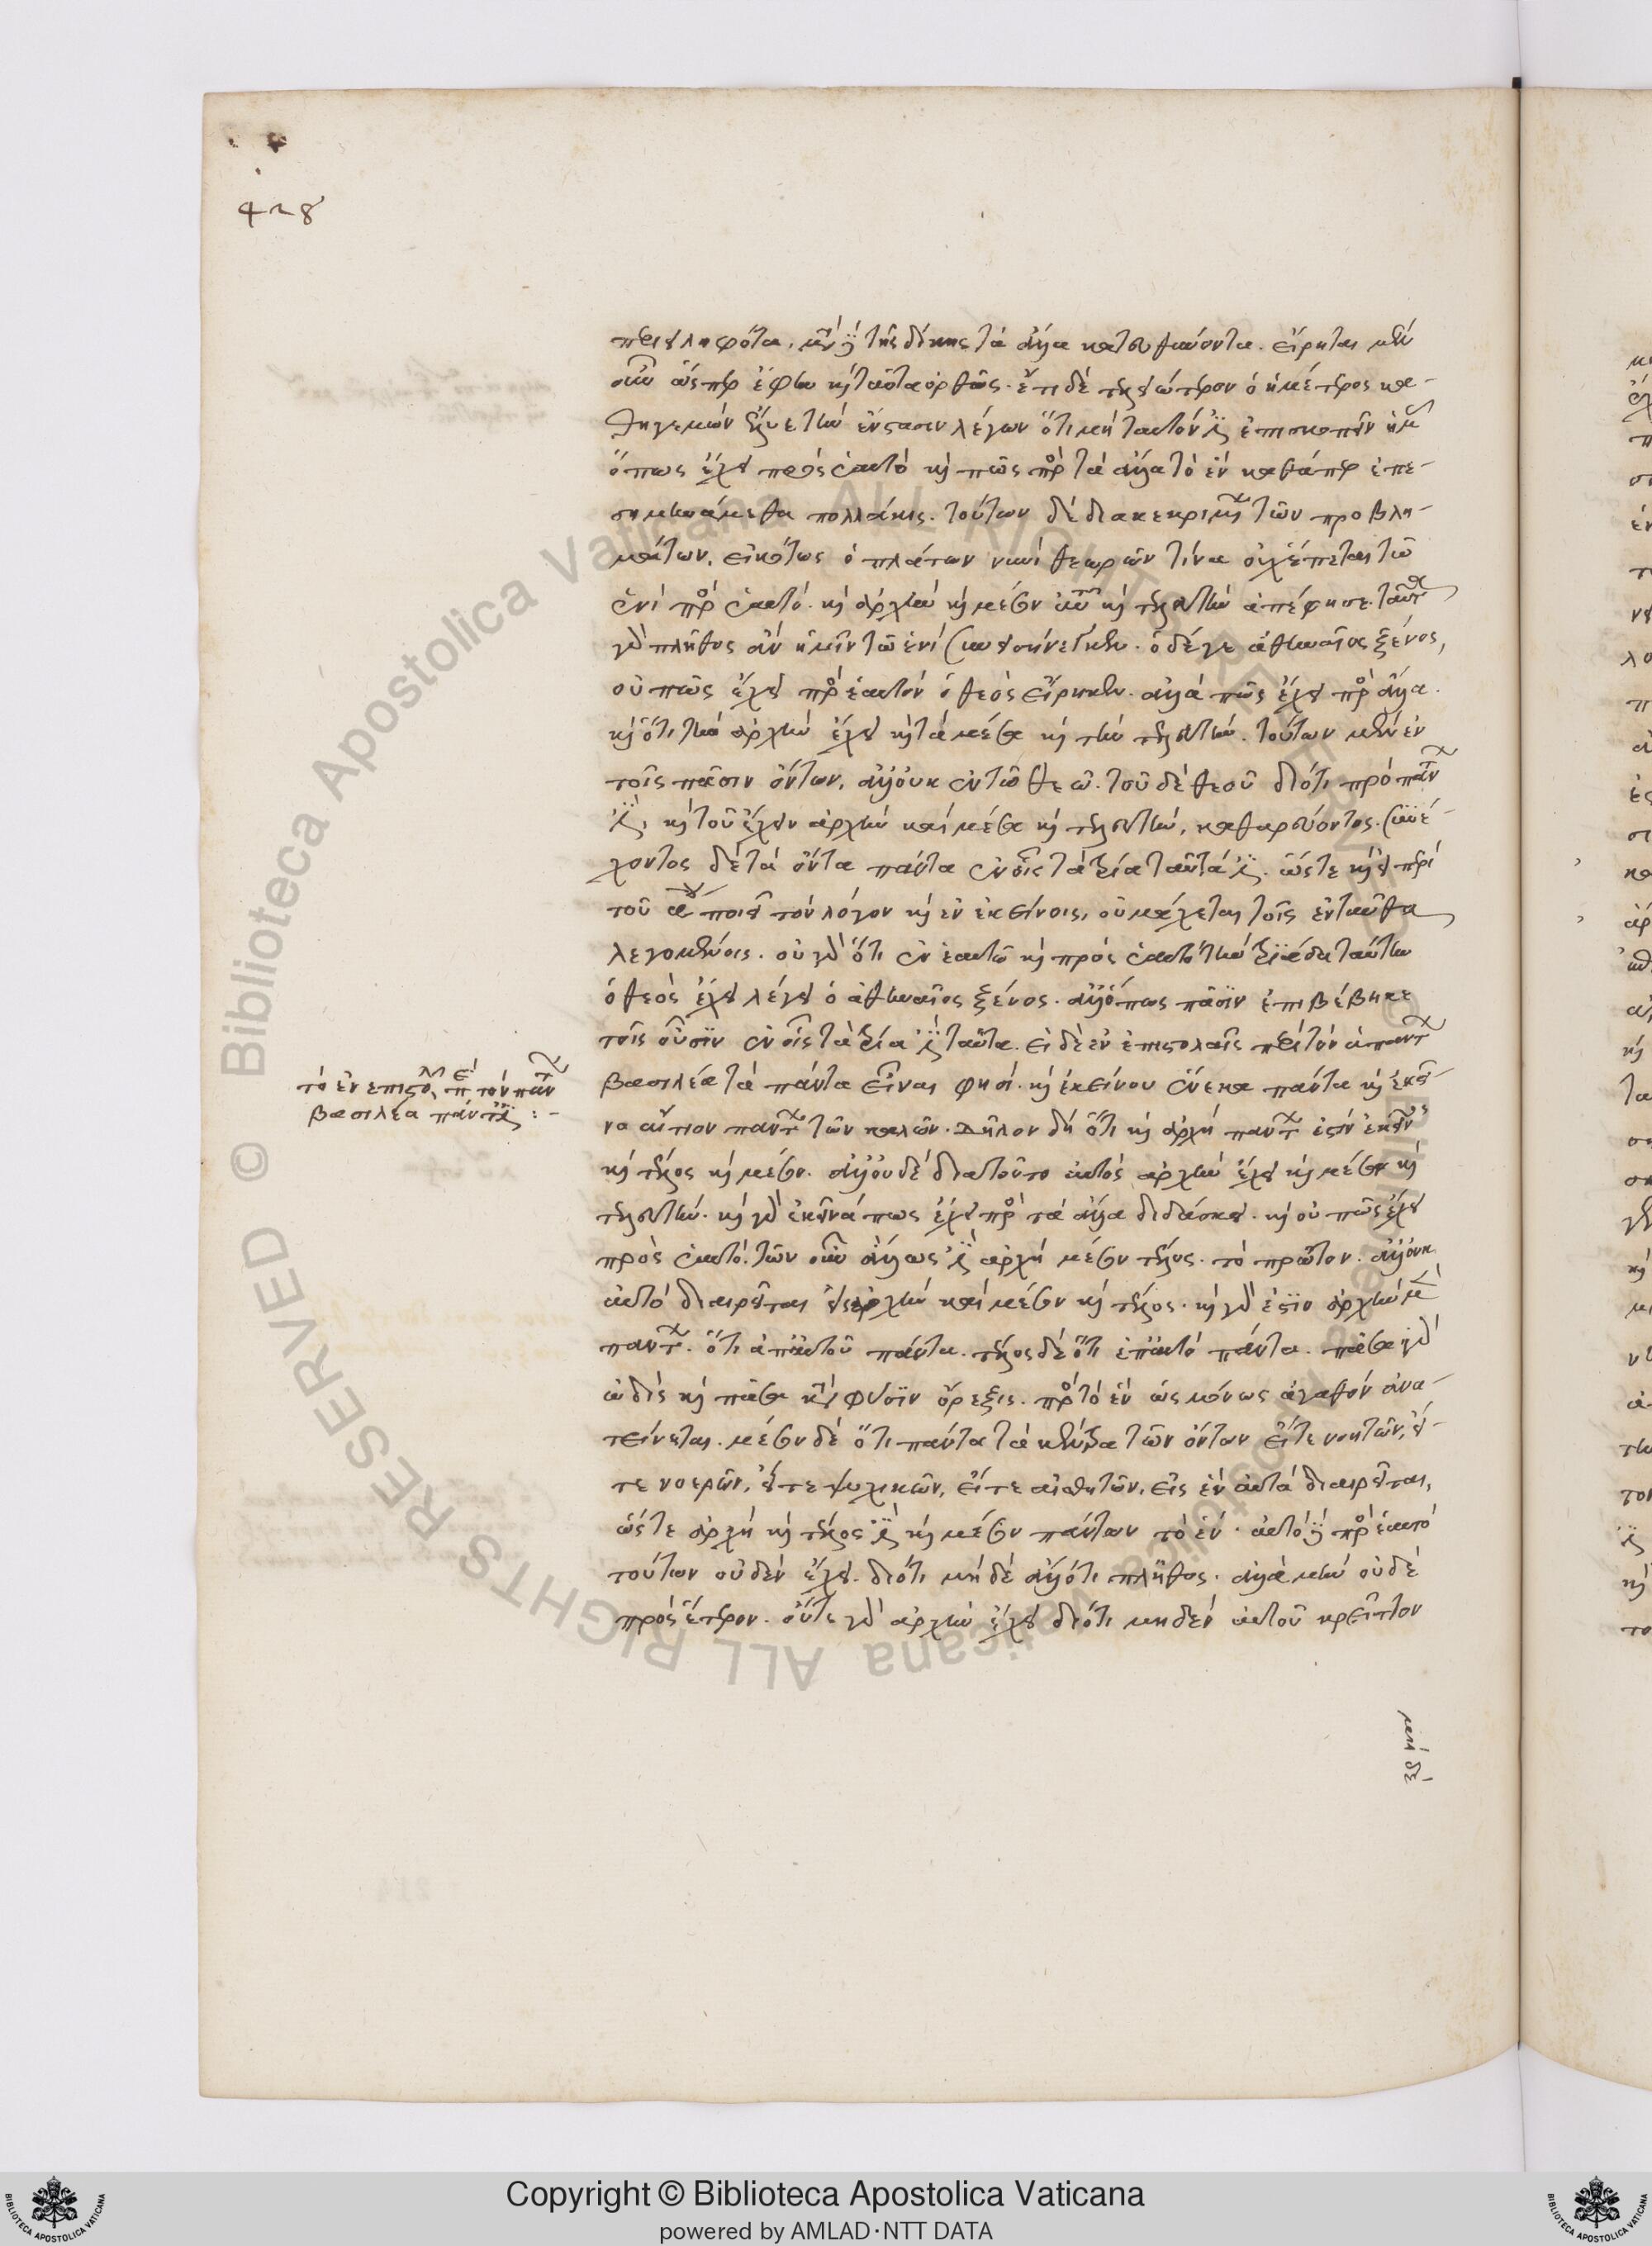 428
περιειληφότα, μετὰ δὲ τῆς δίκης τὰ ἄλλα κατευθύνοντα. εἴρηται μὲν
οὖν ὥσπερ ἔφην καὶ ταῦτα ὀρθῶς. ἔτι δὲ τελεώτερον ὁ ἡμέτερος κα-
θηγεμὼν ἔλυε τὴν ἔνστασιν λέγων ὅτι μὴ ταυτόν ἐστιν ἐπισκοπεῖν ἡμᾶς
ὅπως ἔχει πρὸς ἑαυτὸ καὶ πῶς πρὸς τὰ ἄλλα τὸ ἓν καθάπερ ἐπε-
σημηνάμεθα πολλάκις. τούτων δὲ διακεκριμένων τῶν προβλη-
μάτων, εἰκότως ὁ πλάτων νυνὶ θεωρῶν τίνα οὐχ ἕπεται τῷ
ἑνὶ πρὸς ἑαυτό. καὶ ἀρχὴν καὶ μέσον αὐτοῦ καὶ τελευτὴν ἀπέφησε. ταῦτα
γὰρ πλῆθος ἂν ἡμῖν τῷ ἑνὶ συνεισήνεγκεν. ὁ δέ γε ἀθηναῖος ξένος,
οὐ πῶς ἔχει πρὸς ἑαυτὸν ὁ θεὸς εἴρηκεν. ἀλλὰ πῶς ἔχει πρὸς ἄλλα.
καὶ ὅτι τὴν ἀρχὴν ἔχει καὶ τὰ μέσα καὶ τὴν τελευτήν. τούτων μὲν ἐν
τοῖς πᾶσιν ὄντων, ἀλλ' οὐκ ἐν τῷ θεῷ. τοῦ δὲ θεοῦ διότι πρὸ πάντων
ἐστί, καὶ τοῦ ἔχειν ἀρχὴν καὶ μέσα καὶ τελευτήν, καθαρεύοντος. συνέ-
χοντος δὲ τὰ ὄντα πάντα ἐν οἷς τὰ τρία ταῦτά ἐστιν. ὥστε καὶ εἰ περὶ
τοῦ πρώτου ποιεῖται τὸν λόγον καὶ ἐν ἐκείνοις, οὐ μάχεται τοῖς ἐνταῦθα
λεγομένοις. οὐ γὰρ ὅτι ἐν ἑαυτῷ καὶ πρὸς ἑαυτὸ τὴν τριάδα ταύτην
ὁ θεὸς ἔχει λέγει ὁ ἀθηναῖος ξένος. ἀλλ' ὅπως πᾶσιν ἐπιβέβηκε
τοῖς οὖσιν ἐν οἷς τὰ τρία ἐστὶ ταῦτα. εἰ δὲ ἐν ἐπιστολαῖς περὶ τὸν ἁπάντων
βασιλέα τὰ πάντα εἶναι φησί. καὶ ἐκείνου ἕνεκα πάντα καὶ ἐκεῖ-
νο αἴτιον πάντων τῶν καλῶν. δῆλον δὴ ὅτι καὶ ἀρχὴ πάντων ἐστὶν ἐκεῖνος
καὶ τέλος καὶ μέσον. ἀλλ' οὐδὲ διὰ τοῦτο αὐτὸς ἀρχὴν ἔχει καὶ μέσον καὶ
τελευτήν. καὶ γὰρ ἐκεῖνά πως ἔχει πρὸς τὰ ἄλλα διδάσκει. καὶ οὐ πῶς ἔχει
πρὸς ἑαυτό. τῶν οὖν ἄλλων ὡς ἐστὶ ἀρχὴ μέσον τέλος. τὸ πρῶτον. ἀλλ' οὐκ
αὐτὸ διαιρεῖται εἰς ἀρχὴν καὶ μέσον καὶ τέλος. καὶ γάρ ἐστιν ἀρχὴ μὲν
πάντων. ὅτι ἀπ' αὐτοῦ πάντα. τέλος δὲ ὅτι ἐπ' αὐτὸ πάντα. πᾶσα γὰρ
ὠδὶς καὶ πᾶσα κατὰ φύσιν ὄρεξις. πρὸς τὸ ἓν ὡς μόνως ἀγαθὸν ἀνα-
τείνεται. μέσον δὲ ὅτι πάντα τὰ κέντρα τῶν ὄντων εἴτε νοητῶν, εἴ-
τε νοερῶν, εἴτε ψυχικῶν, εἴτε αἰσθητῶν, εἰς ἓν αὐτὰ διαιρεῖται,
ὥστε ἀρχὴ καὶ τέλος ἐστὶ καὶ μέσον πάντων τὸ ἕν. αὐτὸ δὲ πρὸς ἑαυτὸ
τούτων οὐδὲν ἔχει. διότι μηδὲ ἄλλό τι πλῆθος. ἀλλὰ μὴν οὐδὲ
πρὸς ἕτερον. οὔτε γὰρ ἀρχὴν ἔχει διότι μηδὲν αὐτοῦ κρεῖττον
τὸ ἐν ἐπιστολαῖς περὶ τὸν πάντων
βασιλέα πάντα ἐστί :-